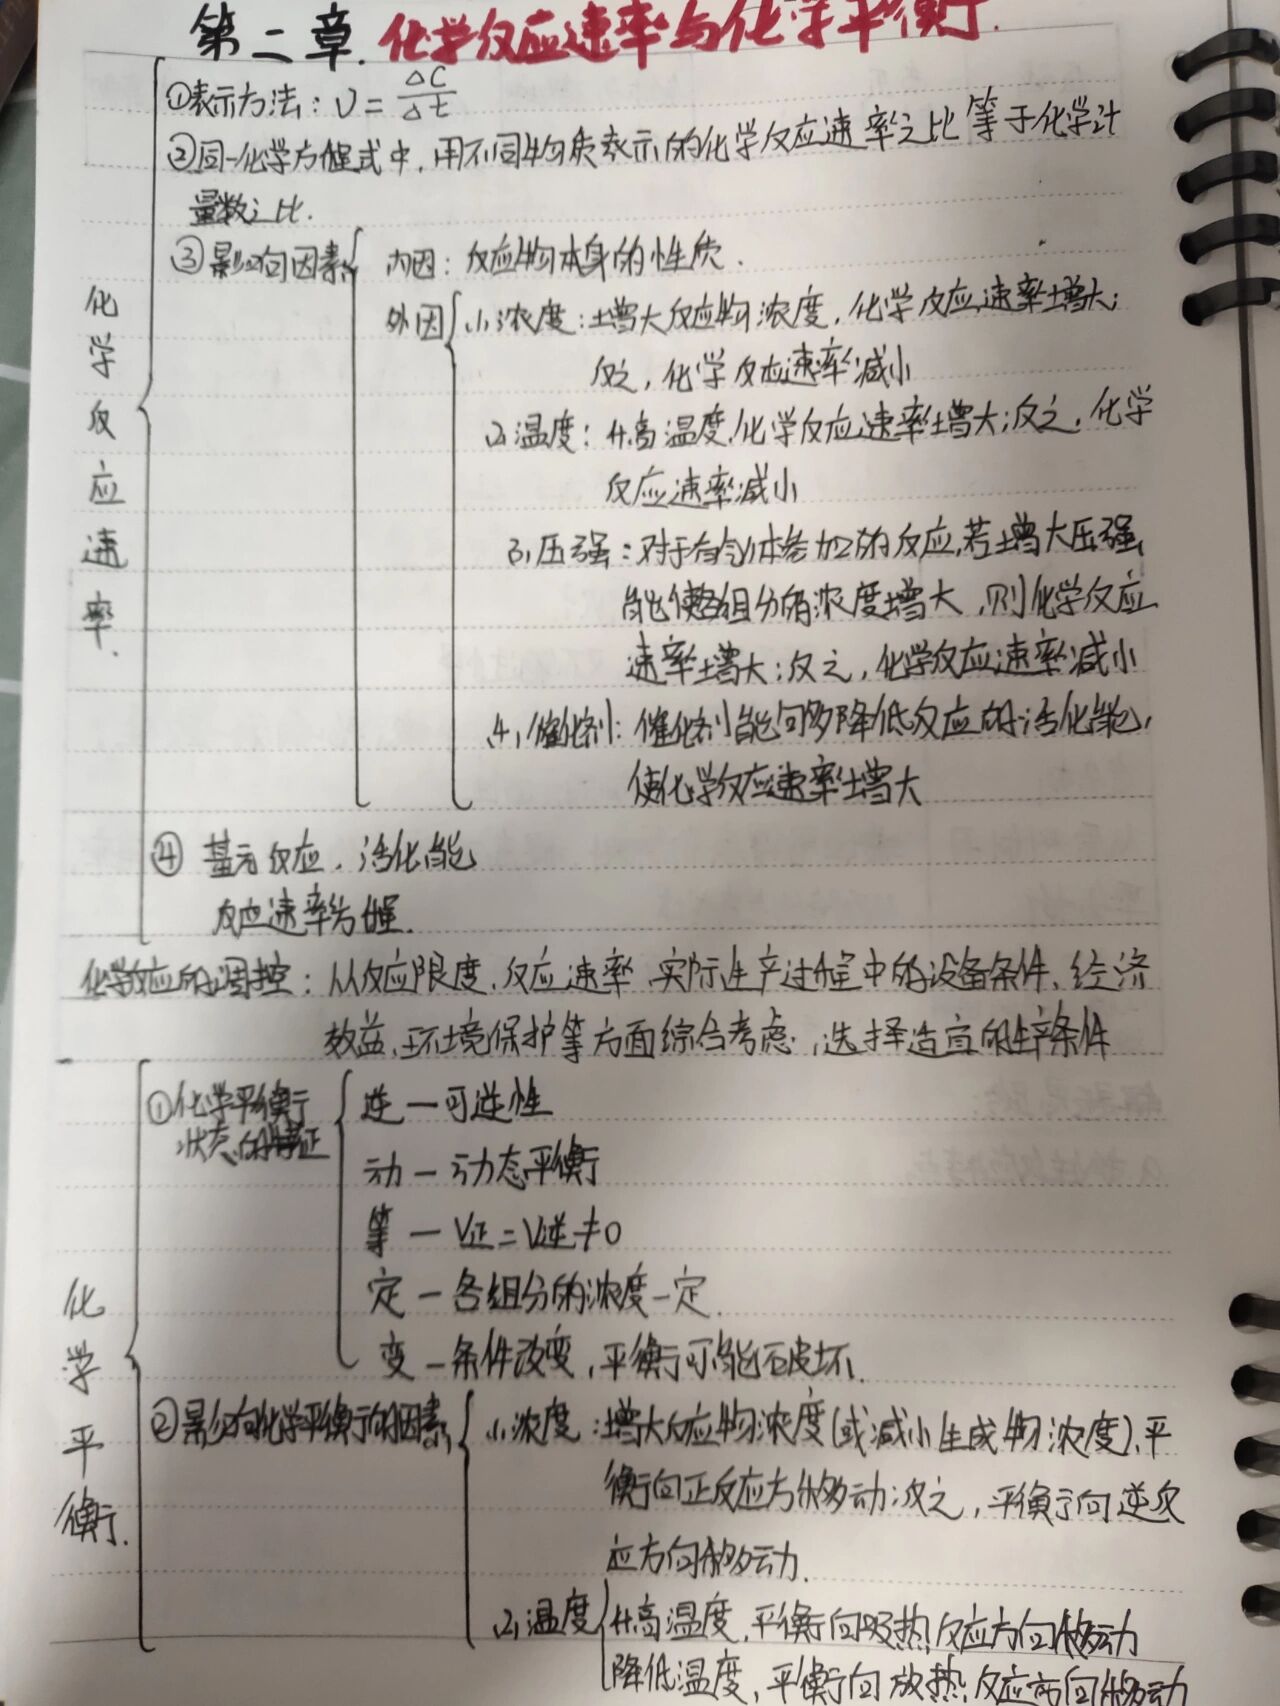 第二章.化学反应速率与化学平衡.
①表示方法:υ=ΔC/Δt
②同一化学方程式中,用不同物质表示的化学反应速率之比等于化学计
量数之比.
③影响因素
内因:反应物本身的性质.
外因
1、浓度:增大反应物浓度,化学反应速率增大;
反之,化学反应速率减小
2、温度:升高温度,化学反应速率增大;反之,化学
反应速率减小
3、压强:对于有气体参加的反应,若增大压强,
能使各组分的浓度增大,则化学反应
速率增大;反之,化学反应速率减小
4、催化剂:催化剂能够降低反应的活化能,
使化学反应速率增大
④基元反应、活化能
反应速率方程.
化学反应速率.
化学反应的调控:从反应限度、反应速率、实际生产过程中的设备条件、经济
效益、环境保护等方面综合考虑,选择适宜的生产条件
化学平衡.
①化学平衡
状态的特征
逆—可逆性
动—动态平衡
等—V正=V逆≠0
定—各组分的浓度一定.
变—条件改变,平衡可能破坏.
②影响化学平衡的因素
1、浓度:增大反应物浓度(或减小生成物浓度),平
衡向正反应方向移动;反之,平衡向逆反
应方向移动.
2、温度
升高温度,平衡向吸热反应方向移动
降低温度,平衡向放热反应方向移动